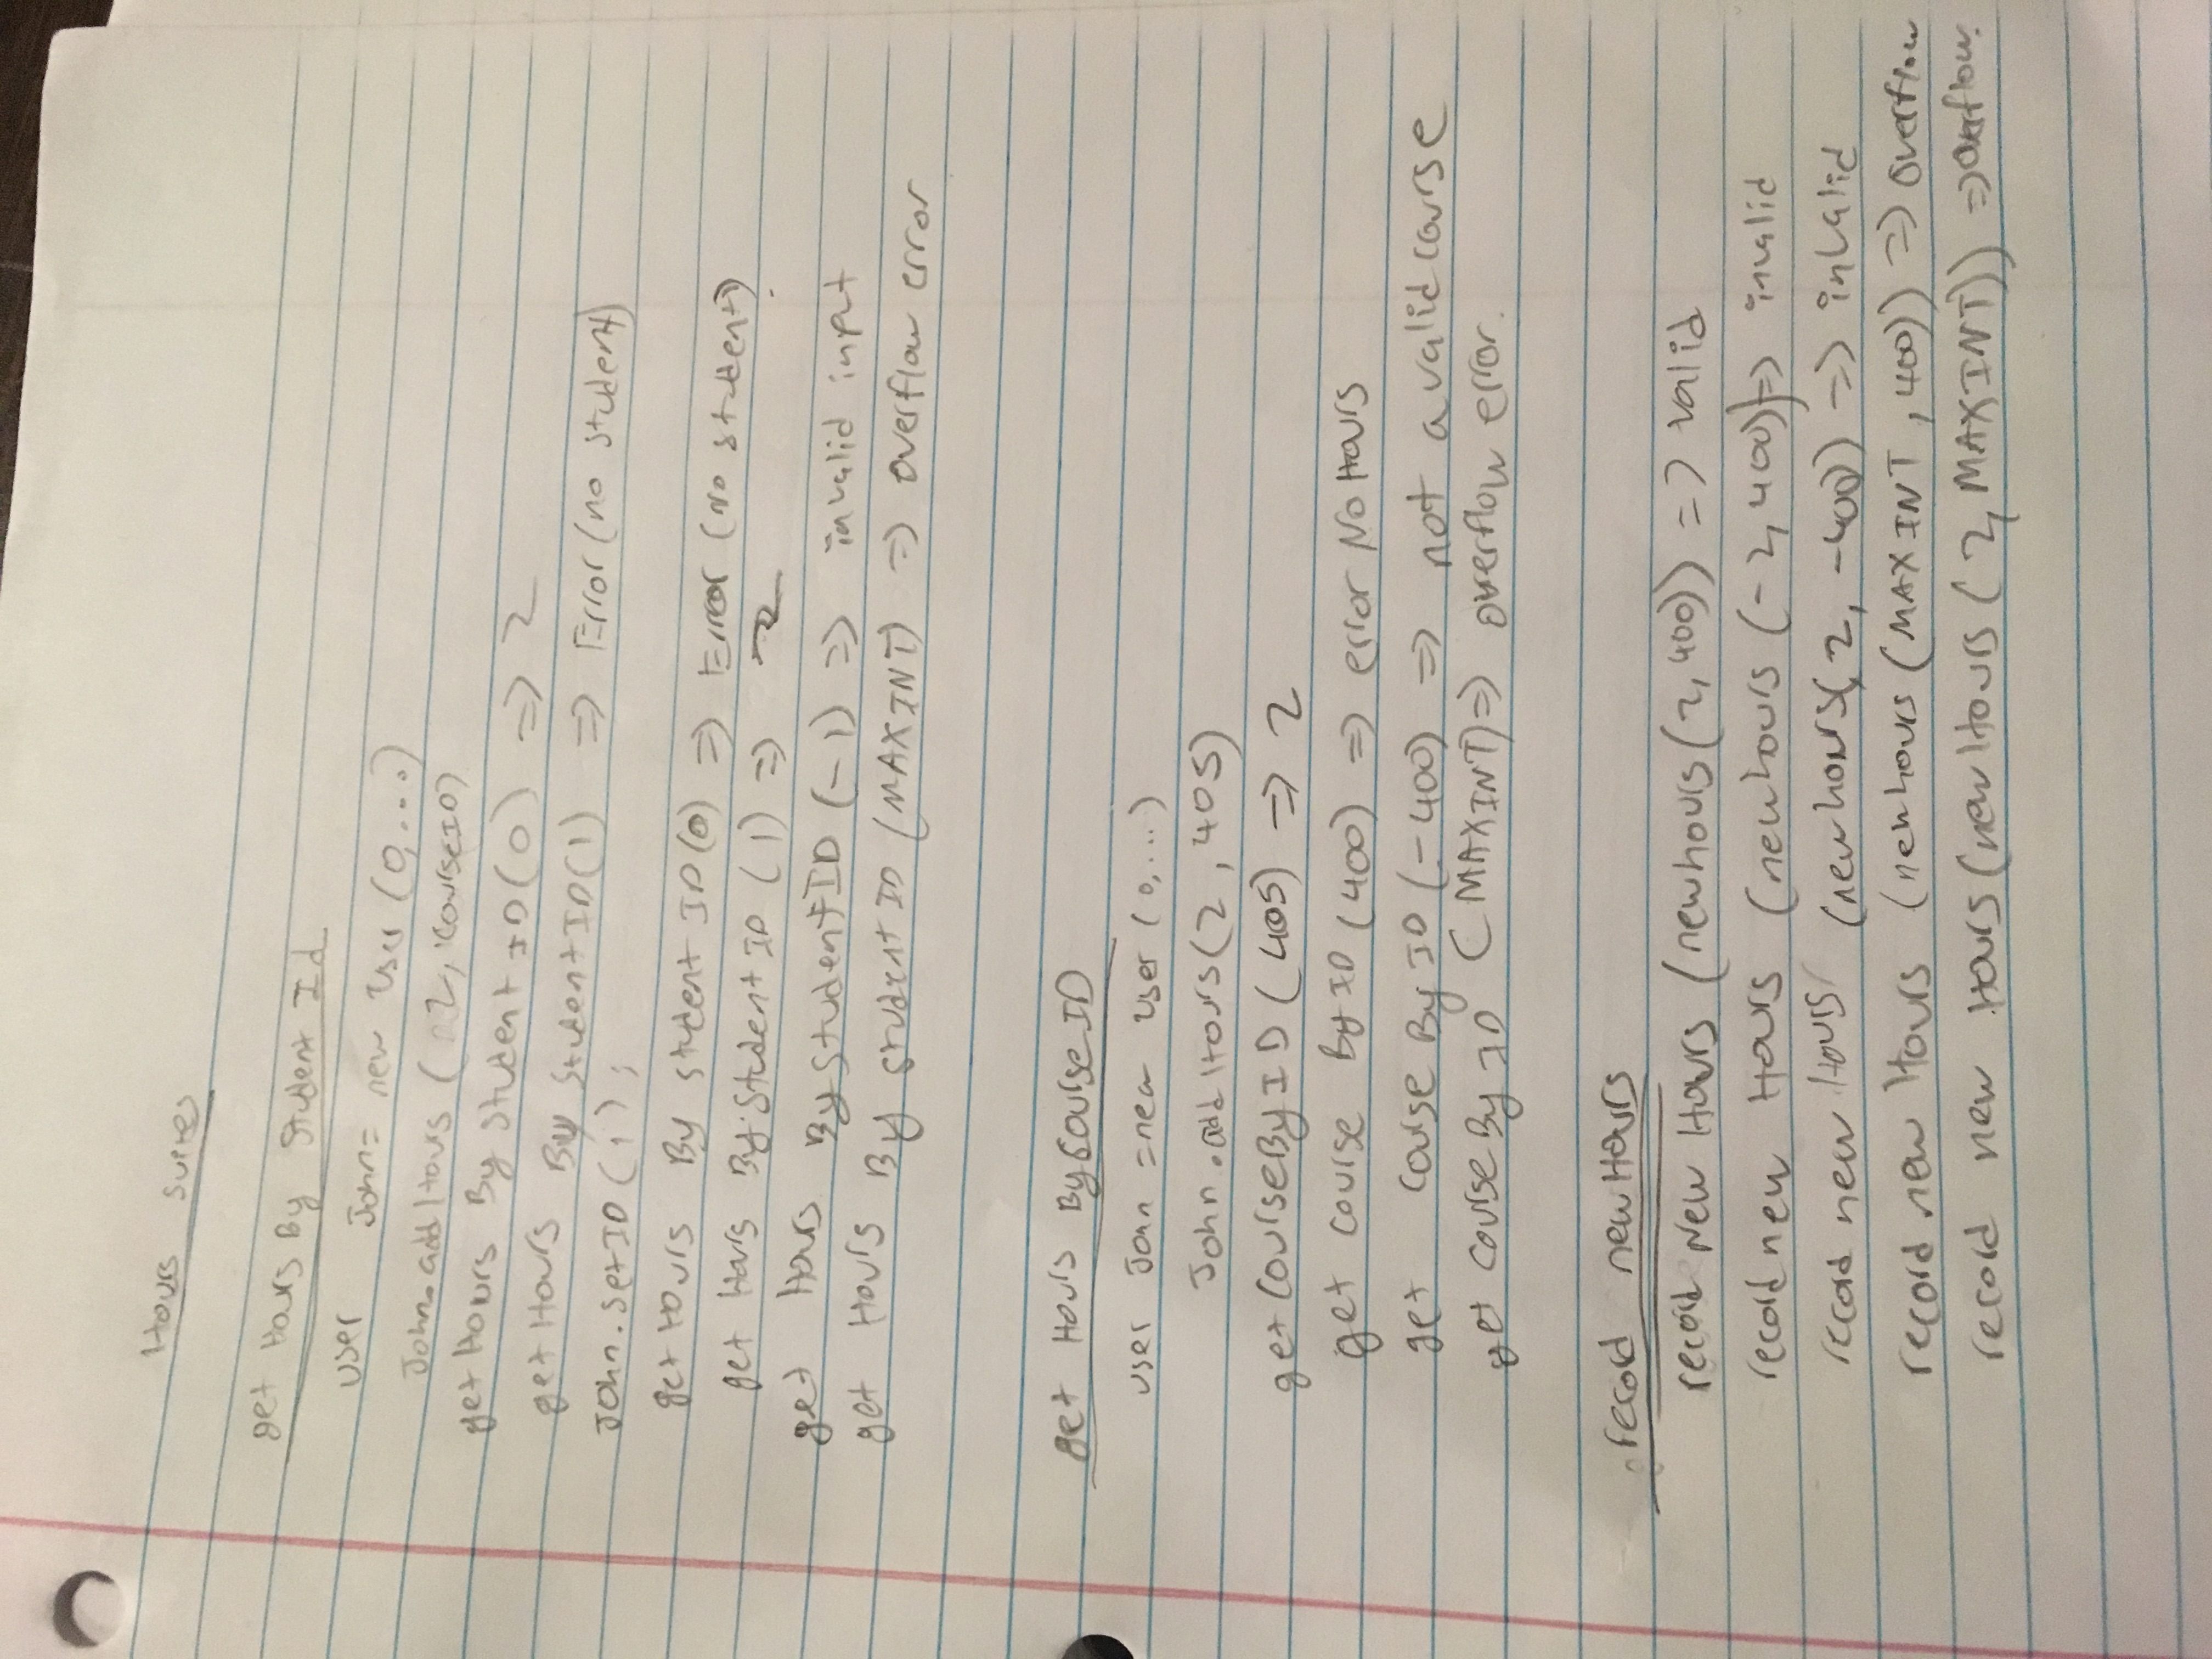 Hours suites
get Hours By Student Id
user John = new User (0,...)
John.addHours ( 2, 'CourseID)
get Hours By Student ID(0) => 2
get Hours By Student ID(1) => Error (no student)
John.setID(1);
get Hours By student ID(0) => Error (no student)
get Hours By Student ID (1) => 2
get Hours By Student ID (-1) => invalid input
get Hours By Student ID (MAXINT) => overflow error
get Hours By Course ID
user John = new User (0,...)
John.addHours(2, 405)
getCourseByID (405) => 2
get course By ID (400) => error No Hours
get course By ID (-400) => not a valid course
get course By ID (MAXINT) => overflow error.
record new Hours
record New Hours (newhours(2,400)) => valid
record new Hours (newhours (-2,400)) => invalid
record new Hours (newhours(2, -400)) => invalid
record new Hours (newhours (MAXINT, 400)) => overflow
record new Hours (newHours (2, MAXINT)) => overflow.